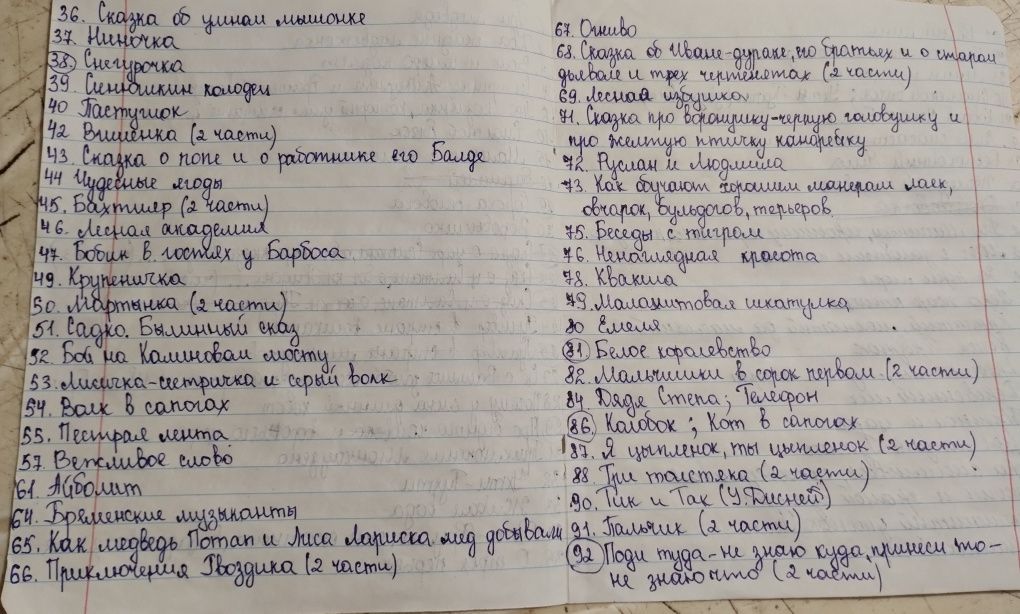 36. Сказка об умном мышонке
37. Ниночка
38. Снегурочка
39. Синюшкин колодец
40 Пастушок
42 Вишенка (2 части)
43. Сказка о попе и о работнике его Балде
44 Чудесные ягоды
45. Бахтияр (2 части)
46. Лесная академия
47. Бобик в гостях у Барбоса
49. Крупеничка
50. Мартынка (2 части)
51. Садко. Былинный сказ
52 Бой на Калиновом мосту
53. Лисичка-сестричка и серый волк
54. Волк в сапогах
55. Пестрая лента
57. Вежливое слово
61. Айболит
64. Бременские музыканты
65. Как медведь Потап и Лиса Лариска мед добывали
66. Приключения Гвоздика (2 части)
67. Огниво
68. Сказка об Иване-дураке, его братьех и о старом
дьяволе и трех чертенетах (2 части)
69. Лесная избушка
71. Сказка про воронушку-черную головушку и
про желтую птичку канарейку
72. Руслан и Людмила
73. Как обучают хорошим манерам лаек,
овчарок, бульдогов, терьеров
75. Беседы с тигром
76. Ненаглядная красота
78. Квакша
79. Малахитовая шкатулка
80 Емеля
81. Белое королевство
82. Мальчишки в сорок первом (2 части)
84. Дядя Степа; Телефон
86. Колобок; Кот в сапогах
87. Я цыпленок, ты цыпленок (2 части)
88. Три толстяка (2 части)
90. Тик и Так (У. Дисней)
91. Пальчик (2 части)
92 Поди туда-не знаю куда, принеси то-
не знаю что (2 части)